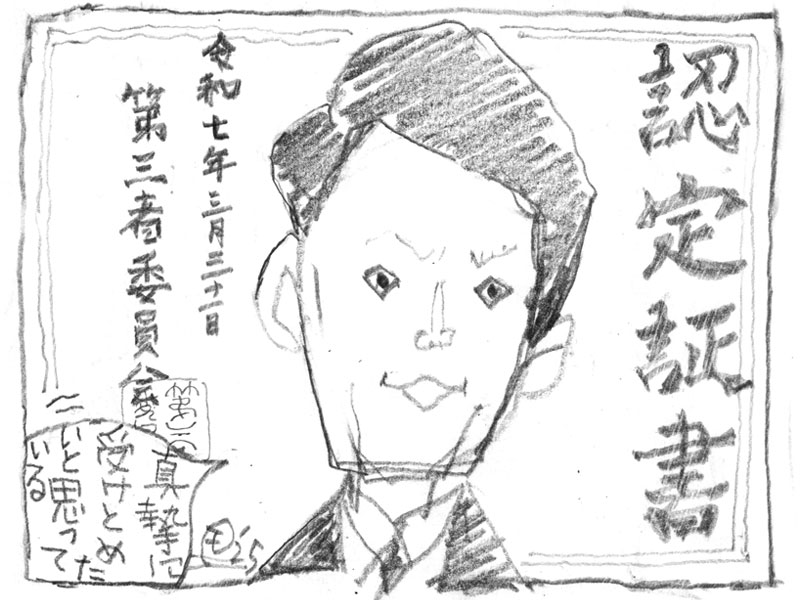 認定証書
令和七年三月三十一日
第三者委員会
第三
委員
真摯に
受けとめ
たいと思って
いる
'25